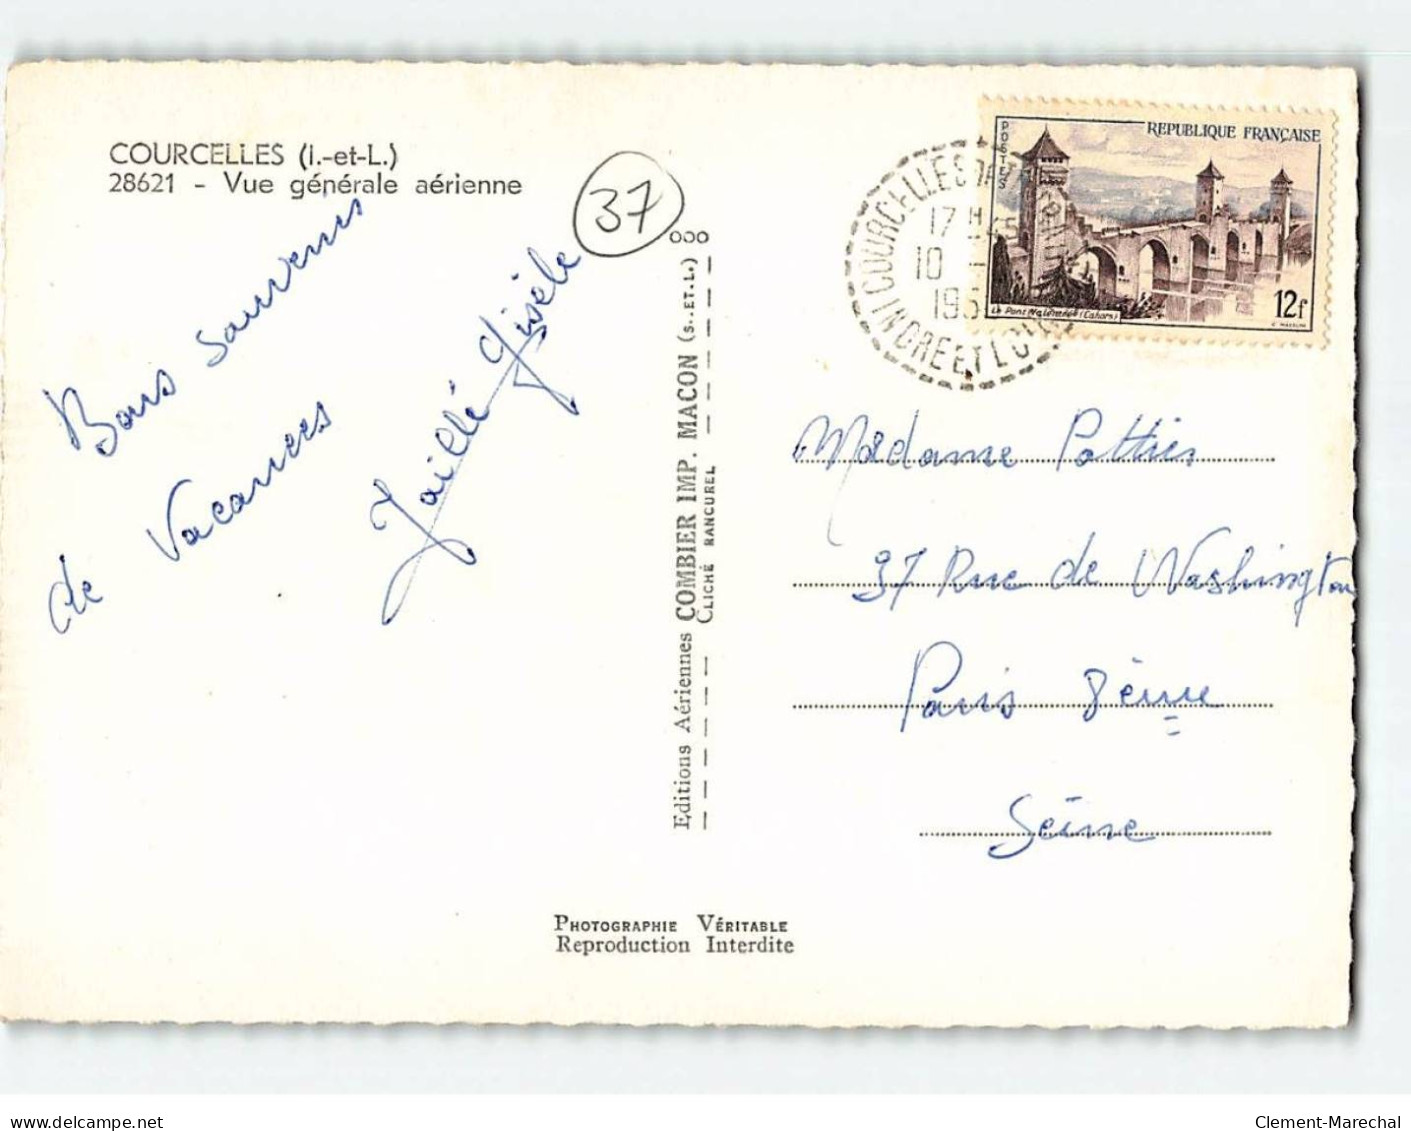 COURCELLES (I.-et-L.)
28621 - Vue générale aérienne
37
Bons souvenirs
de Vacances
Jaillé Gisèle
ooo
Editions Aériennes COMBIER IMP. MACON (S.-ET.L.)
CLICHÉ RANCUREL
PHOTOGRAPHIE VÉRITABLE
Reproduction Interdite
POSTES
REPUBLIQUE FRANÇAISE
Le Pont Valentré (Cahors)
12f
COURCELLES
17 H 45
10
INDRE ET LOIRE
Madame Pottier
37 Rue de Washington
Paris 8ème
Seine
delcampe.net
Clement-Marechal